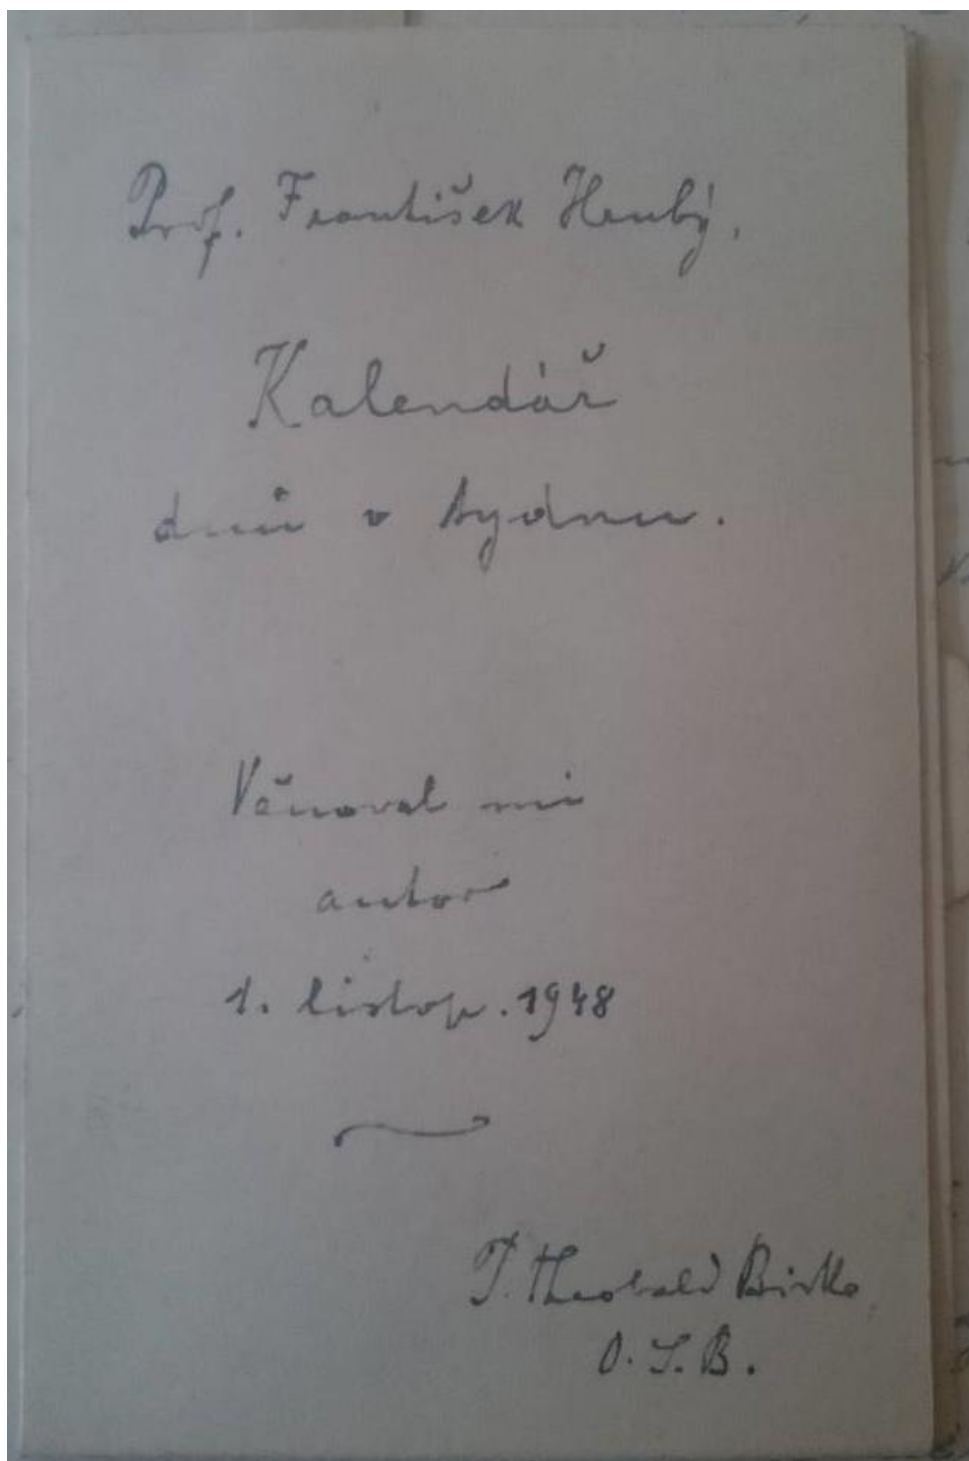 Prof. František Hrubý.
Kalendář
dnů v týdnu.
Věnoval mi
autor
1. listop. 1948
P. Theobald
O. S. B.